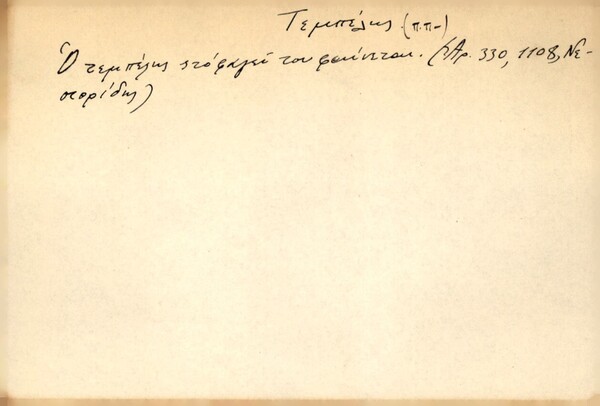 Τεμπέλης (π.π.-)
Ὁ τεμπέλης στὸ φαγεῖ του φαίνεται. (Ἀρ. 330, 1108, Νε-
στορίδης)